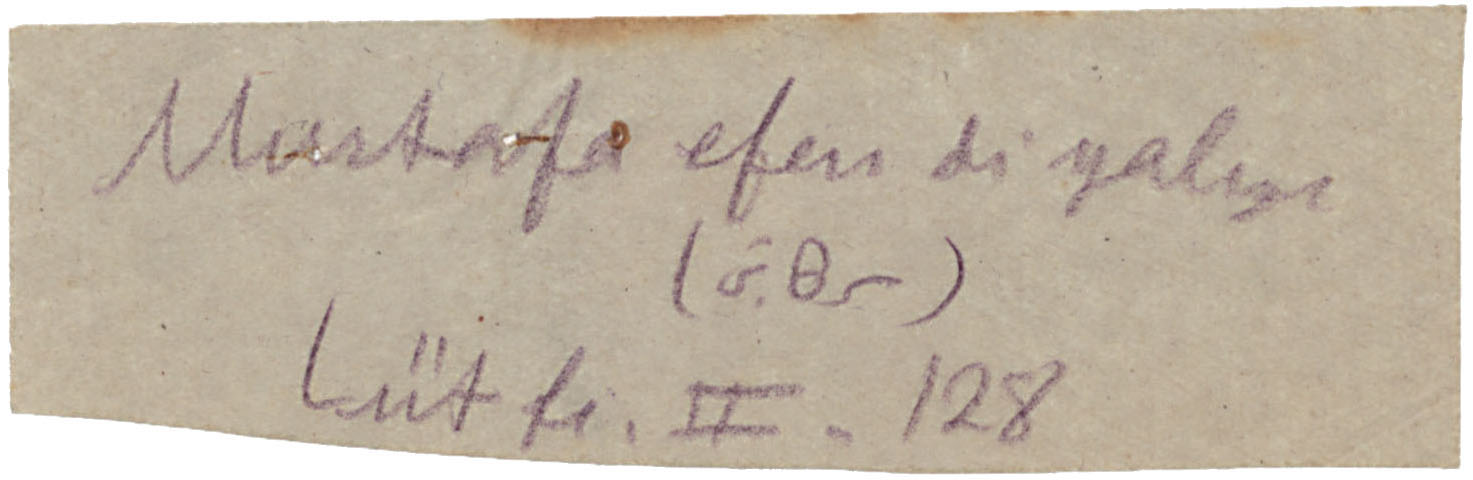 Mustafa efendi yalısı
Lütfi. II. 128